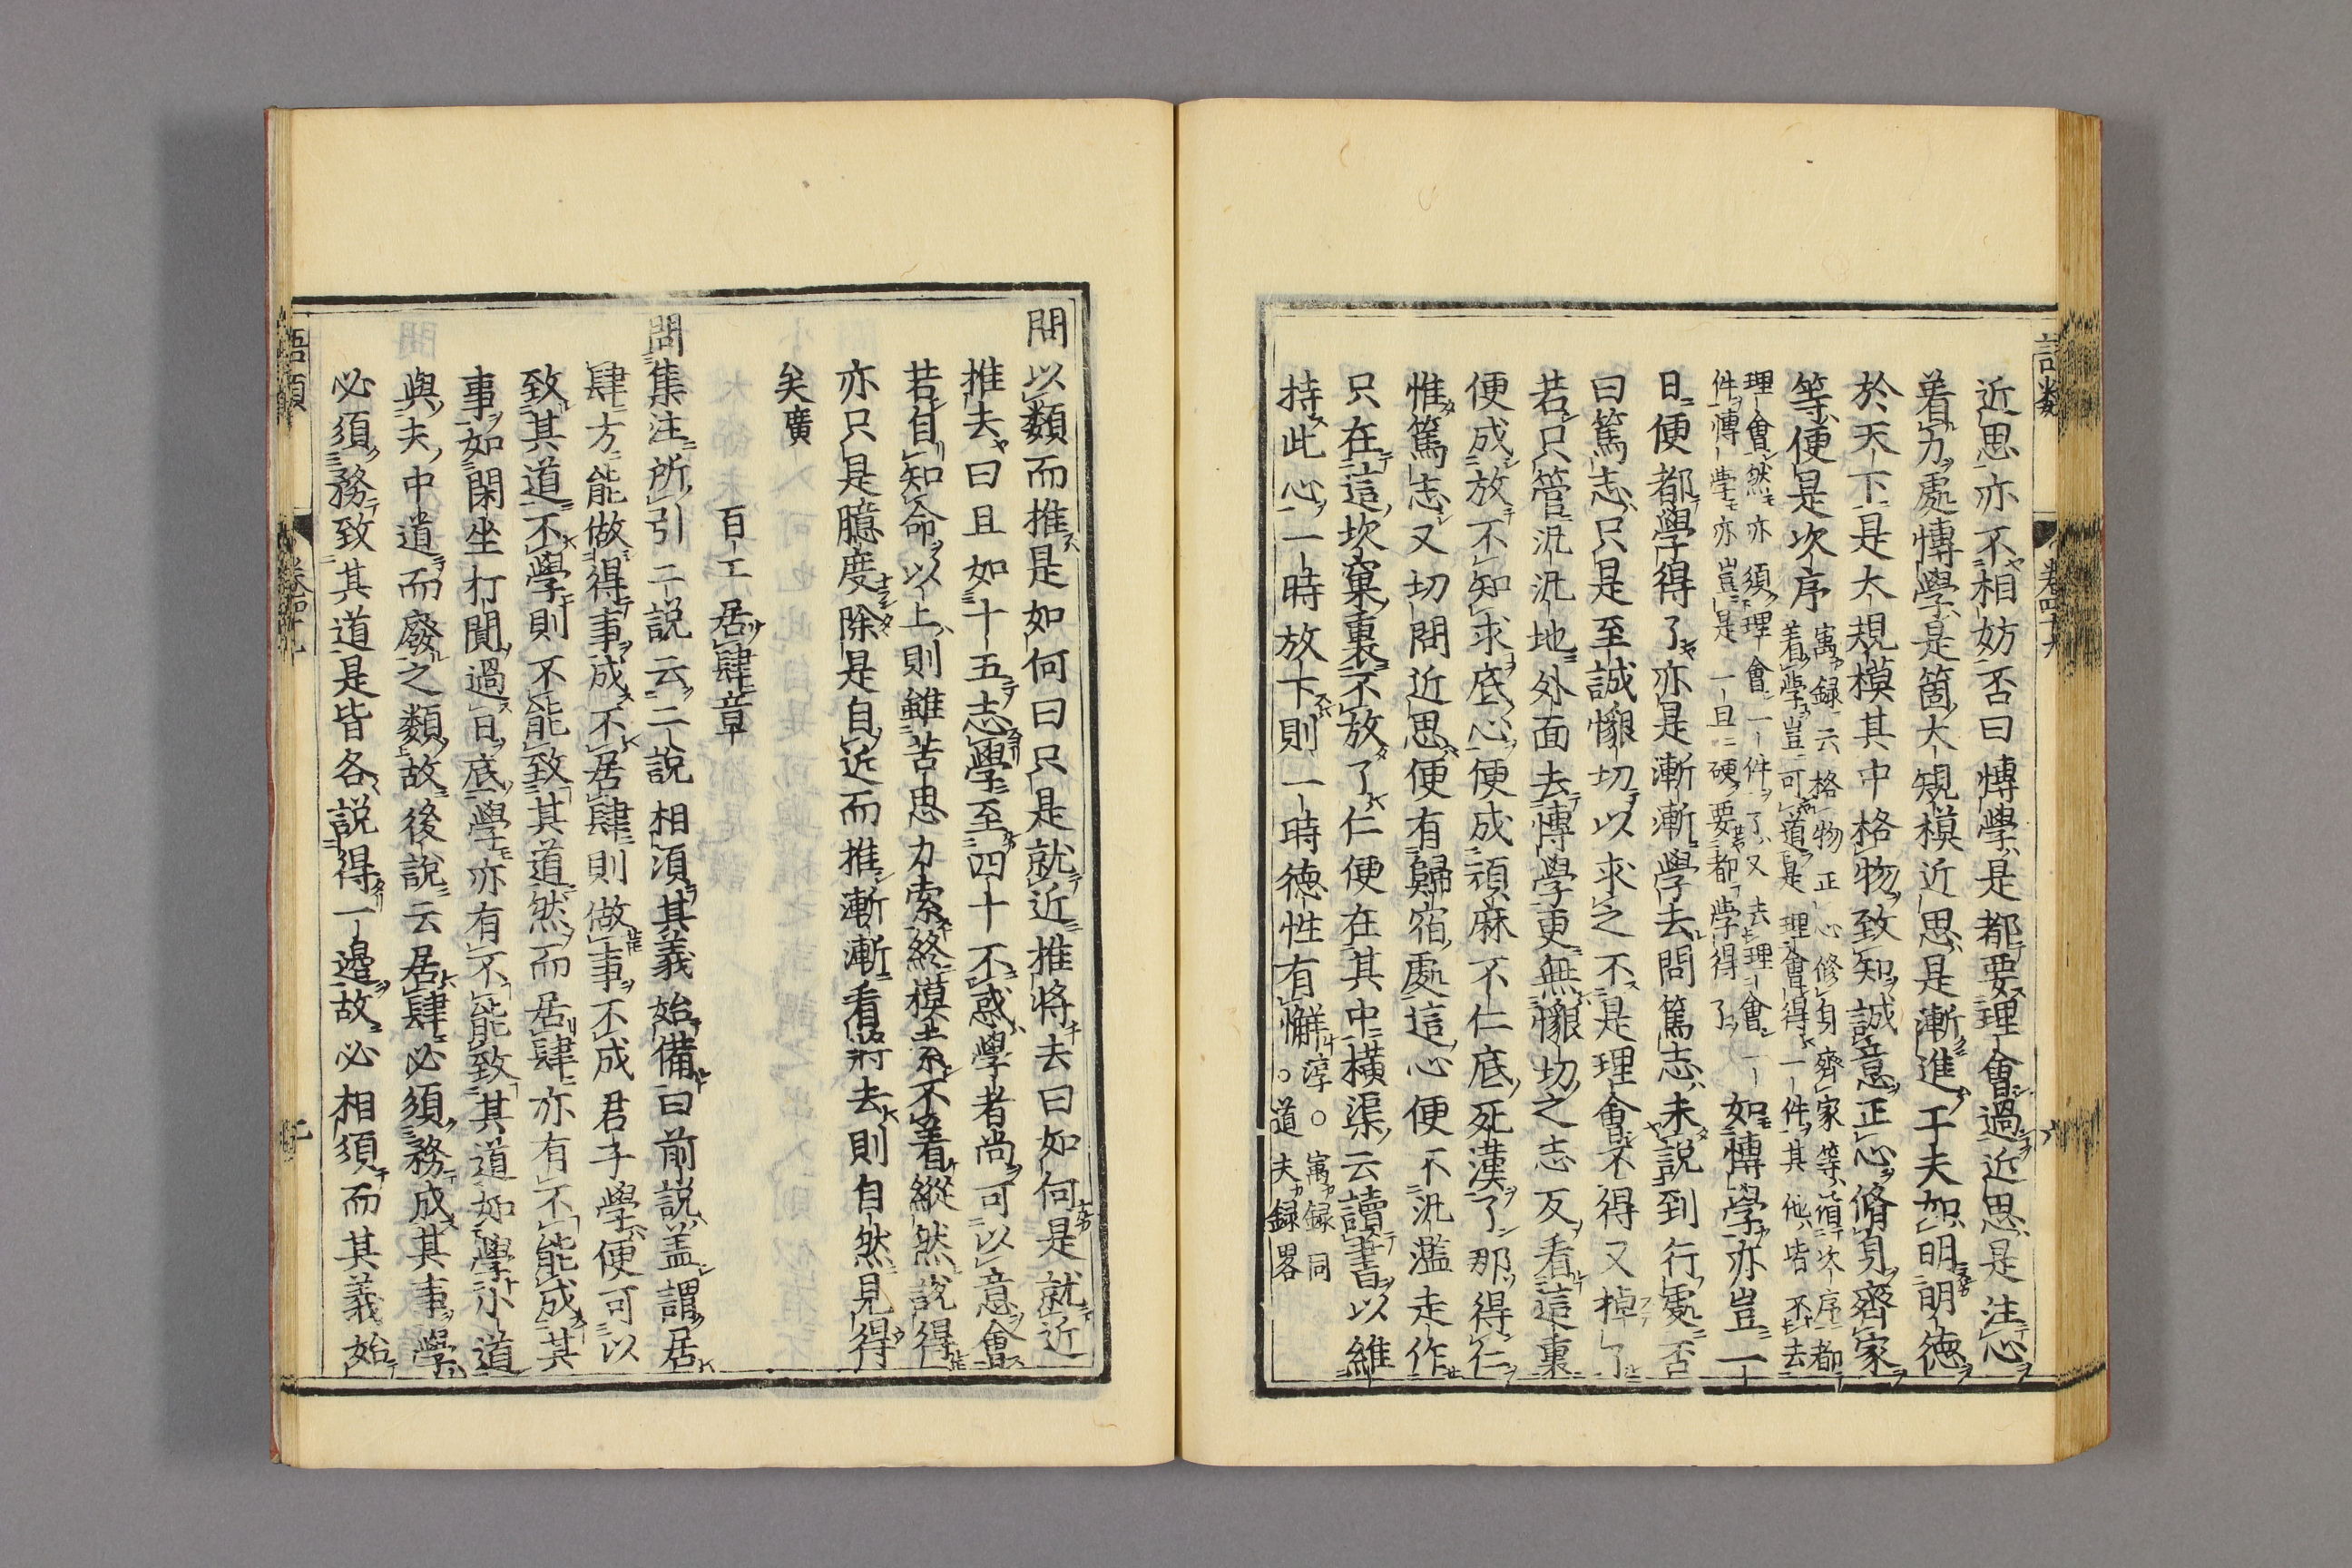 近思亦不相妨否曰博學是都要理會過近思是注心
着力處博學是箇大規模近思是漸進工夫如明明德
於天下是大規模其中格物致知誠意正心脩身齊家
等便是次序寓録云格物正心修身齊家等循次序都
着學豈可道是理會得一件其他皆不去
理會然亦須理會一件了又去理會一
件博學亦豈是一旦硬要都學得了如博學亦豈一
日便都學得了亦是漸漸學去問篤志未說到行處否
曰篤志只是至誠懇切以求之不是理會不得又掉了
若只管汎汎地外面去博學更無懇切之志反看這裏
便成放不知求底心便成頑麻不仁底死漢了那得仁
惟篤志又切問近思便有歸宿處這心便不汎濫走作
只在這坎窠裏不放了仁便在其中橫渠云讀書以維
持此心一時放下則一時德性有懈淳○寓録同
○道夫録畧
問以類而推是如何曰只是就近推將去曰如何是就近
推去曰且如十五志學至四十不惑學者尚可以意會
若自知命以上則雖苦思力索終模索不着縱然說得
亦只是臆度除是自近而推漸漸看將去則自然見得
矣廣
百工居肆章
問集注所引二說云二說相須其義始備曰前說蓋謂居
肆方能做得事成不居肆則做事不成君子學便可以
致其道不學則不能致其道然而居肆亦有不能成其
事如閑坐打鬨過日底學亦有不能致其道如學小道
與夫中道而廢之類故後說云居肆必須務成其事學
必須務致其道是皆各說得一邊故必相須而其義始
語類
卷四十九